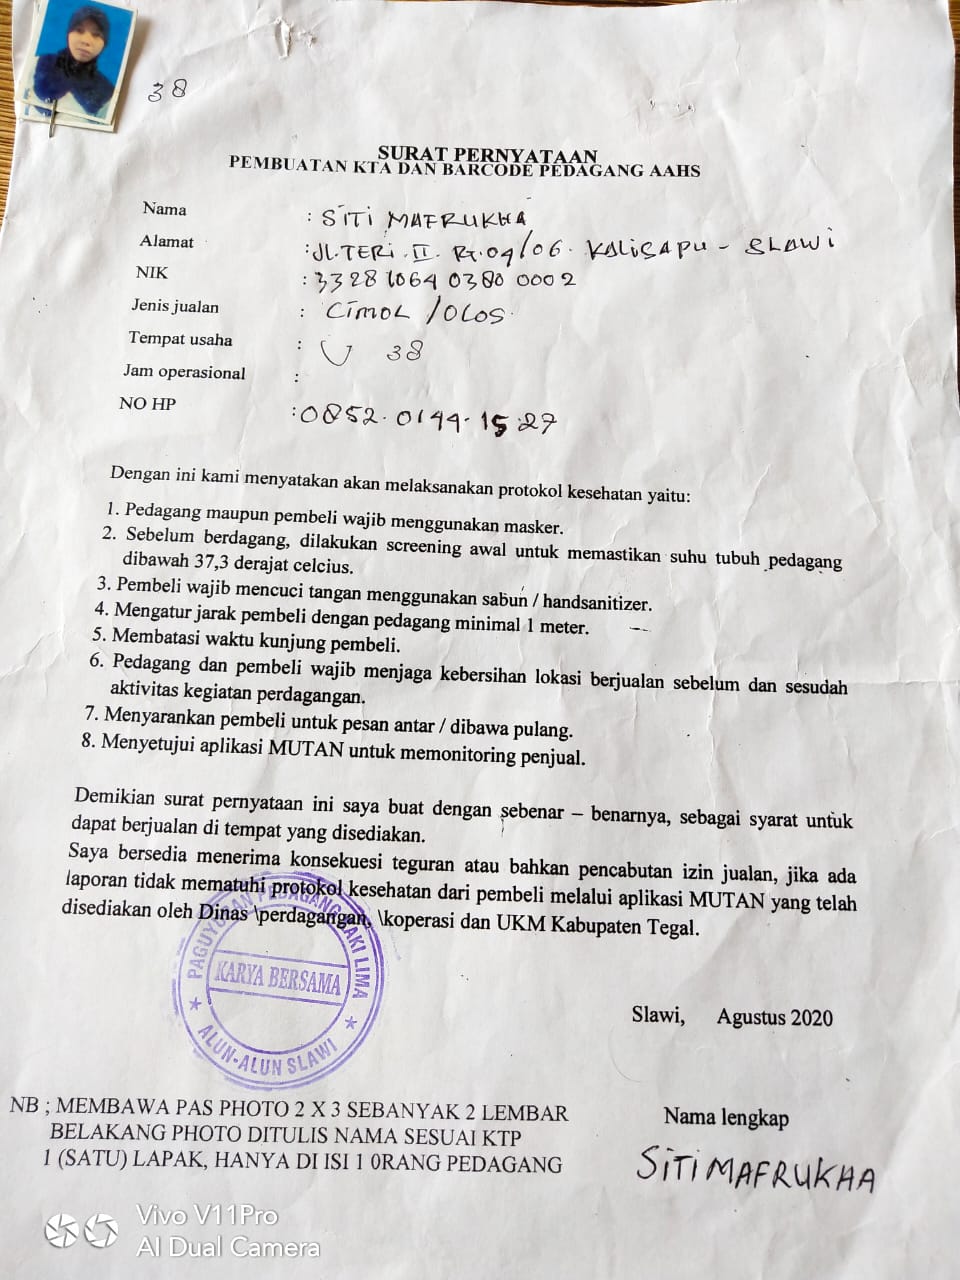 38
SURAT PERNYATAAN
PEMBUATAN KTA DAN BARCODE PEDAGANG AAHS
Nama : SITI MAFRUKHA
Alamat : JL.TERI. II. Rt.04/06. KALISAPU - SLAWI
NIK : 3328 1064 0380 0002
Jenis jualan : CIMOL / OLOS.
Tempat usaha : U 38
Jam operasional :
NO HP : 0852. 0144. 1527
Dengan ini kami menyatakan akan melaksanakan protokol kesehatan yaitu:
1. Pedagang maupun pembeli wajib menggunakan masker.
2. Sebelum berdagang, dilakukan screening awal untuk memastikan suhu tubuh pedagang
dibawah 37,3 derajat celcius.
3. Pembeli wajib mencuci tangan menggunakan sabun / handsanitizer.
4. Mengatur jarak pembeli dengan pedagang minimal 1 meter.
5. Membatasi waktu kunjung pembeli.
6. Pedagang dan pembeli wajib menjaga kebersihan lokasi berjualan sebelum dan sesudah
aktivitas kegiatan perdagangan.
7. Menyarankan pembeli untuk pesan antar / dibawa pulang.
8. Menyetujui aplikasi MUTAN untuk memonitoring penjual.
Demikian surat pernyataan ini saya buat dengan sebenar – benarnya, sebagai syarat untuk
dapat berjualan di tempat yang disediakan.
Saya bersedia menerima konsekuesi teguran atau bahkan pencabutan izin jualan, jika ada
laporan tidak mematuhi protokol kesehatan dari pembeli melalui aplikasi MUTAN yang telah
disediakan oleh Dinas \perdagangan, \koperasi dan UKM Kabupaten Tegal.
PAGUYUBAN PEDAGANG KAKI LIMA
KARYA BERSAMA
ALUN-ALUN SLAWI
Slawi, Agustus 2020
NB ; MEMBAWA PAS PHOTO 2 X 3 SEBANYAK 2 LEMBAR
BELAKANG PHOTO DITULIS NAMA SESUAI KTP
1 (SATU) LAPAK, HANYA DI ISI 1 0RANG PEDAGANG
Nama lengkap
SITI MAFRUKHA
Vivo V11Pro
AI Dual Camera